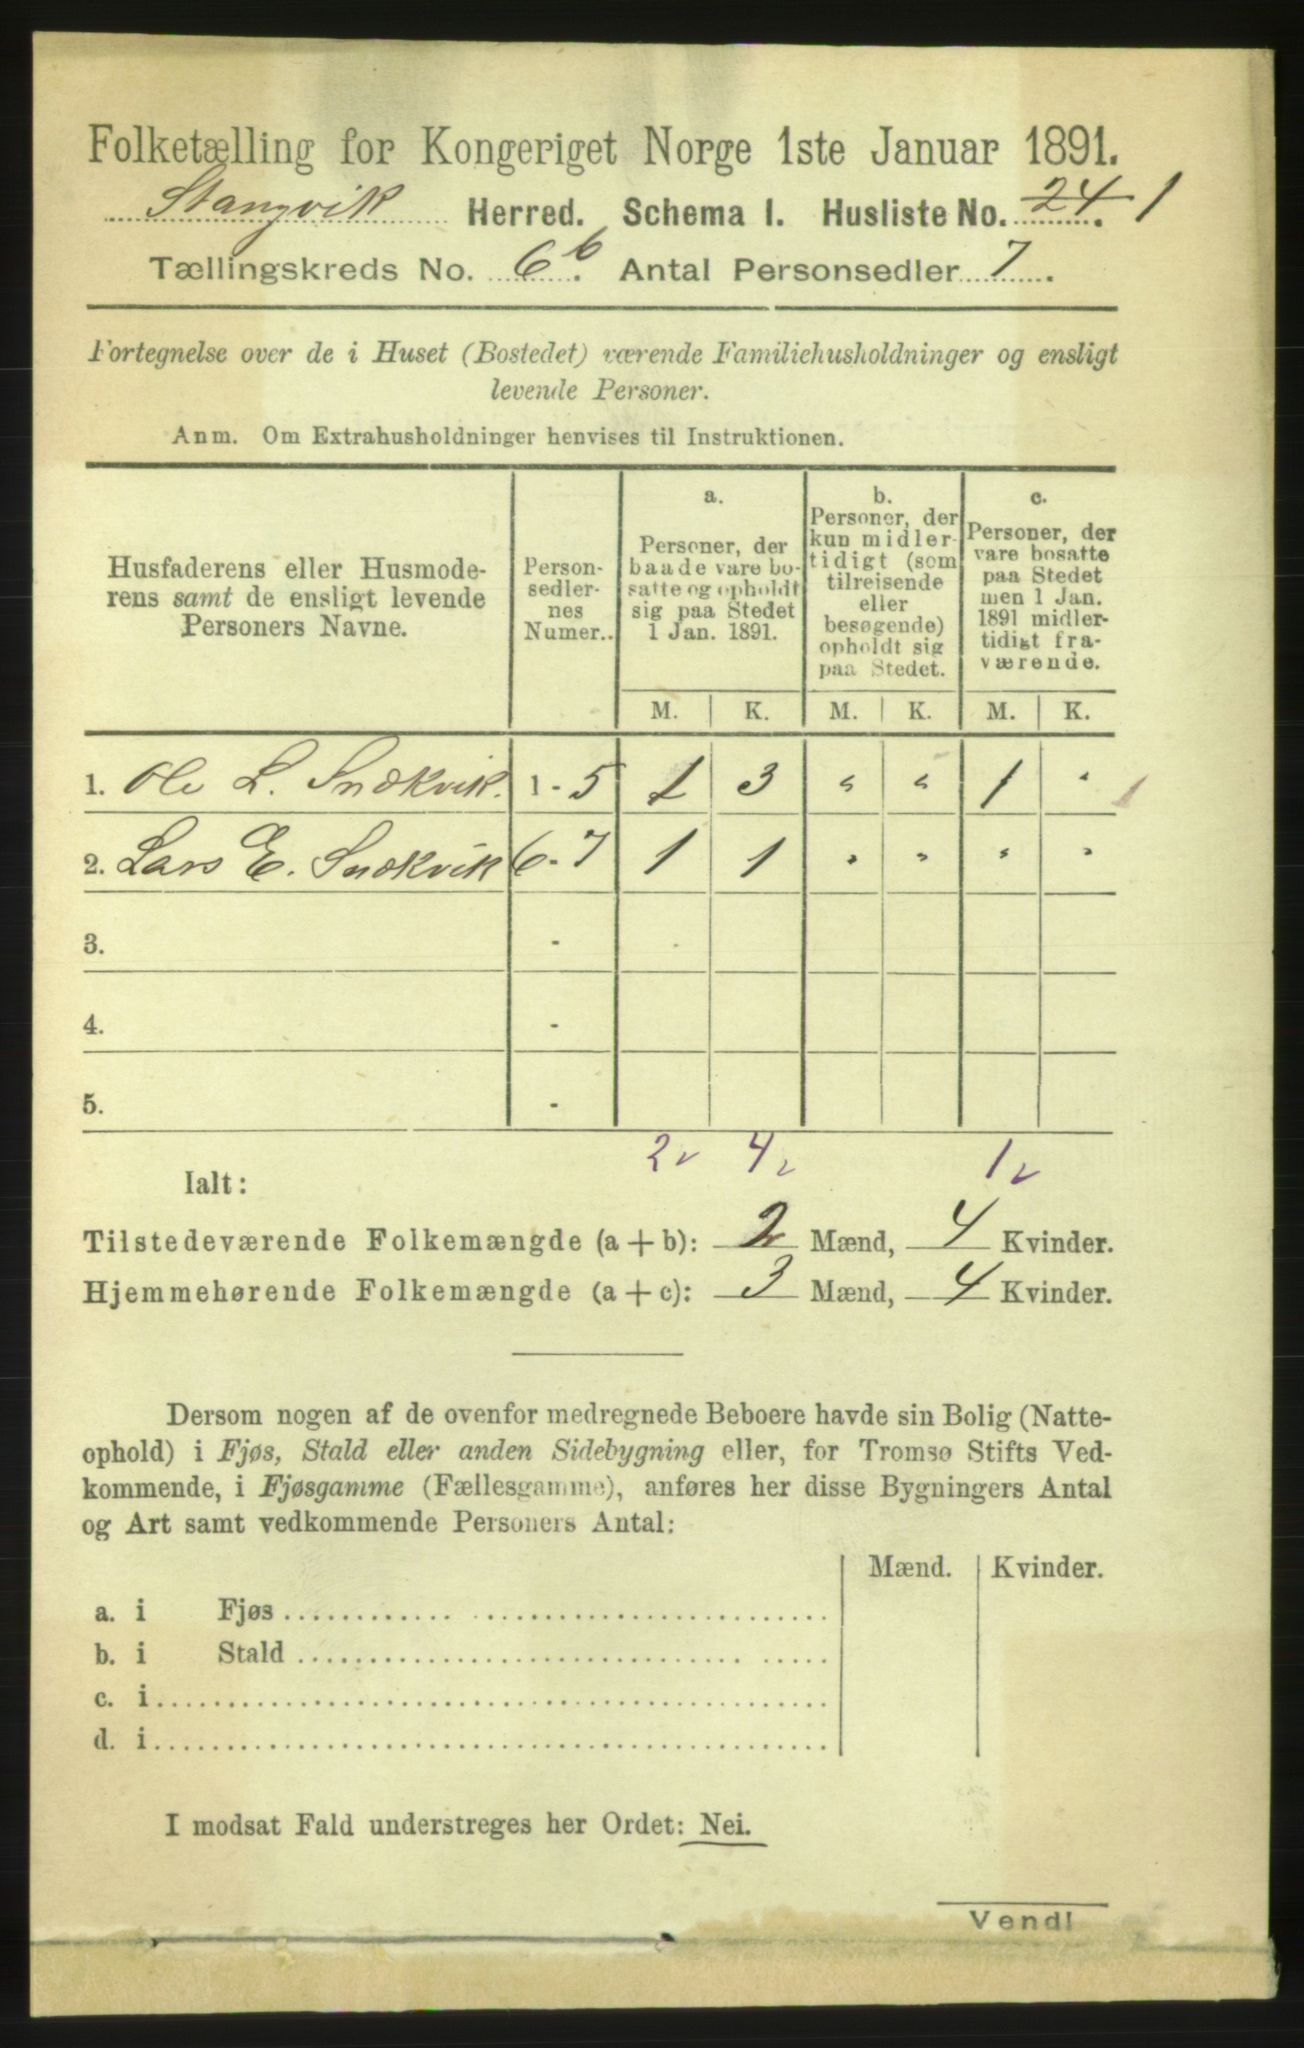 Folketælling for Kongeriget Norge 1ste Januar 1891.
Stangvik Herred. Schema I. Husliste No. 24. 1
Tællingskreds No. 6 b. Antal Personsedler 7.
Fortegnelse over de i Huset (Bostedet) værende Familiehusholdninger og ensligt
levende Personer.
Anm. Om Extrahusholdninger henvises til Instruktionen.
Husfaderens eller Husmode-
rens samt de ensligt levende
Personers Navne.
Person-
sedler-
nes
Numer..
a.
Personer, der
baade vare bo-
satte og opholdt
sig paa Stedet
1 Jan. 1891.
b.
Personer, der
kun midler-
tidigt (som
tilreisende
eller
besøgende)
opholdt sig
paa Stedet.
c.
Personer, der
vare bosatte
paa Stedet
men 1 Jan.
1891 midler-
tidigt fra-
værende.
M. K. M. K. M. K.
1. Ole L. Snækvik. 1 - 5 1 3 " " 1 " 1
2. Lars E. Snækvik 6 - 7 1 1 " " " "
3. -
4. -
5. -
2 v 4 v 1 v
Ialt:
Tilstedeværende Folkemængde (a + b): 2 Mænd, 4 Kvinder.
Hjemmehørende Folkemængde (a + c): 3 Mænd, 4 Kvinder.
Dersom nogen af de ovenfor medregnede Beboere havde sin Bolig (Natte-
ophold) i Fjøs, Stald eller anden Sidebygning eller, for Tromsø Stifts Ved-
kommende, i Fjøsgamme (Fællesgamme), anføres her disse Bygningers Antal
og Art samt vedkommende Personers Antal:
Mænd. Kvinder.
a. i Fjøs
b. i Stald
c. i
d. i
I modsat Fald understreges her Ordet: Nei.
Vend!